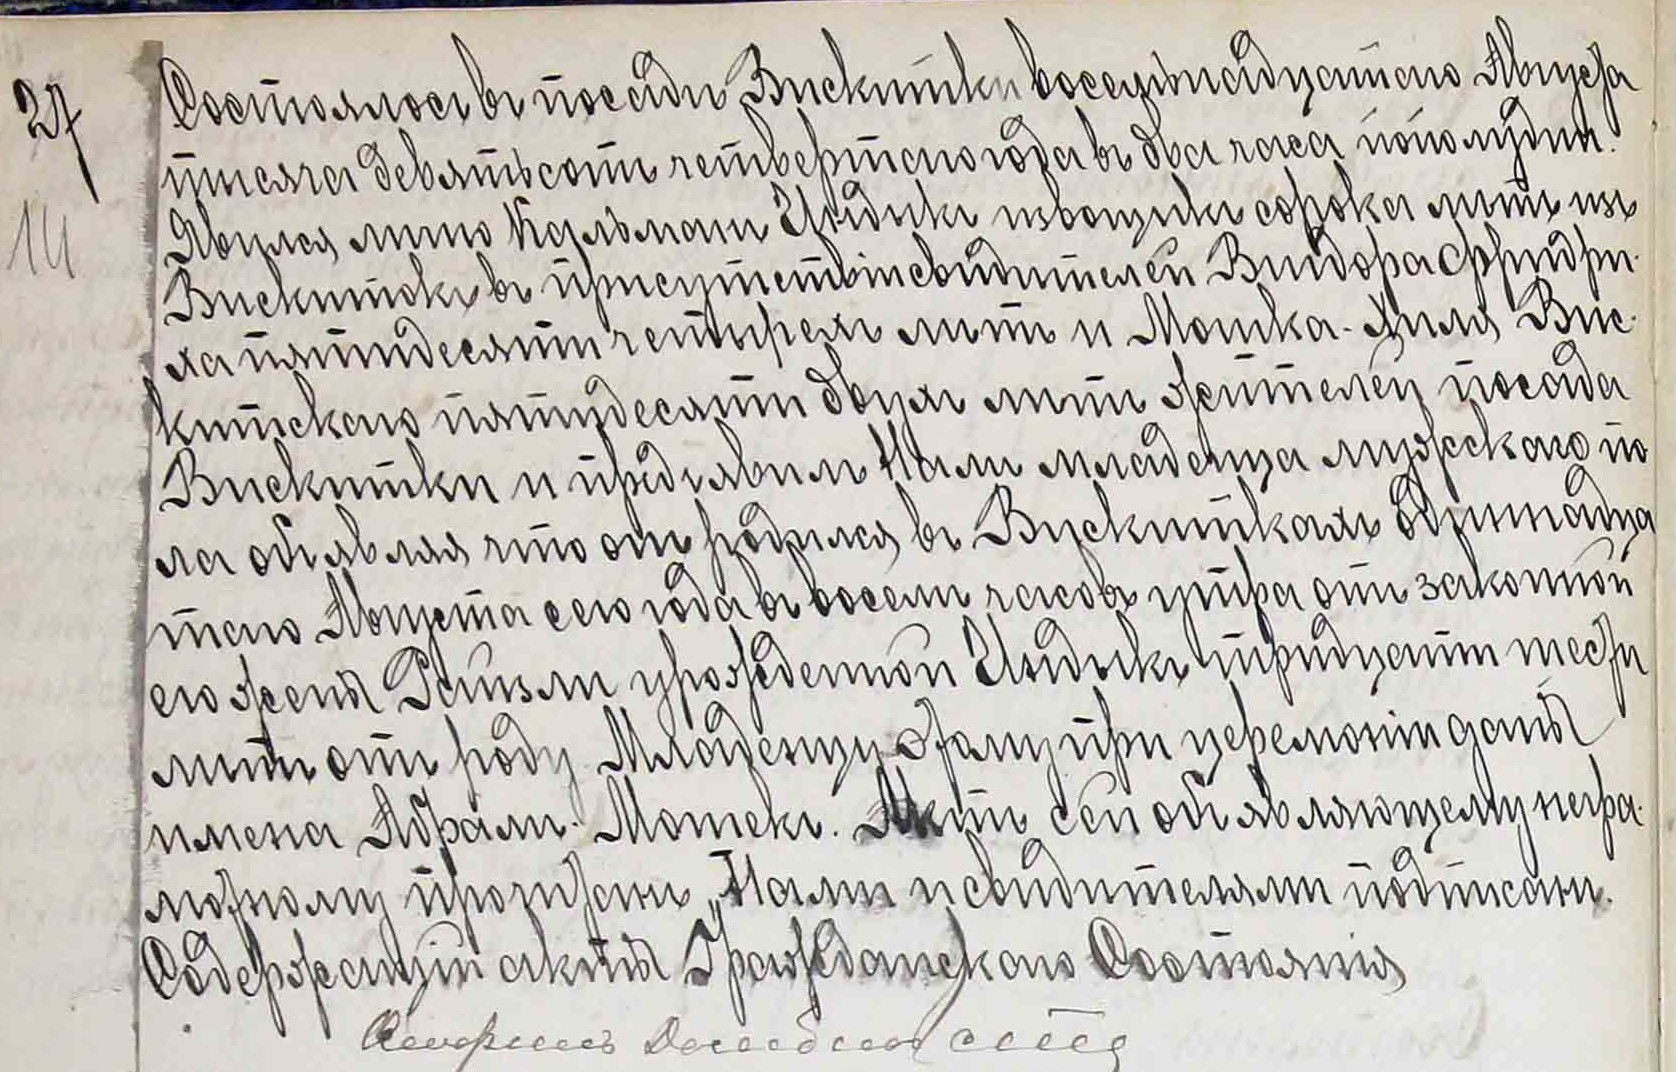 27
14
Состоялось въ посадѣ Вискитки восемьнадцатаго Августа
тысяча девятьсотъ четвертаго года въ два часа пополудни.
Явился лично Кальманъ Индыкъ извощикъ сорока лѣтъ изъ
Вискитокъ въ присутствіи свидѣтелей Вигдора Фридри-
ха пятидесяти четырехъ лѣтъ и Мошка-Хиля Вис-
китскаго пятидесяти двухъ лѣтъ жителей посада
Вискитки и предъявилъ Намъ младенца мужскаго по
ла объявляя что онъ родился въ Вискиткахъ Одиннадца
таго Августа сего года въ восемь часовъ утра отъ законной
его жены Рейзли урожденной Индыкъ тридцати шести
лѣтъ отъ роду. Младенцу этому при церемоніи даны
имена Абрамъ-Мошекъ. Актъ сей объявляющему негра-
мотному прочитанъ, Нами и свидѣтелями подписанъ.
Содержащій акты Гражданскаго Состоянія